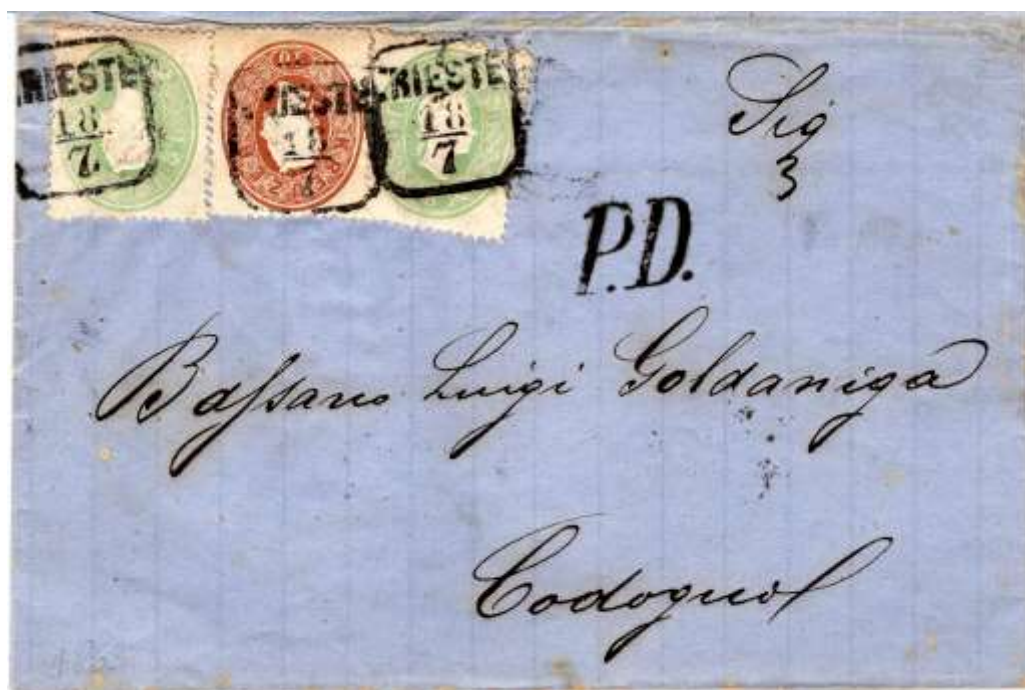 TRIESTE
18/7
TRIESTE
18/7
TRIESTE
18/7
10
KREUZER
Sig
P.D.
Bassano Luigi Goldaniga
Codogno